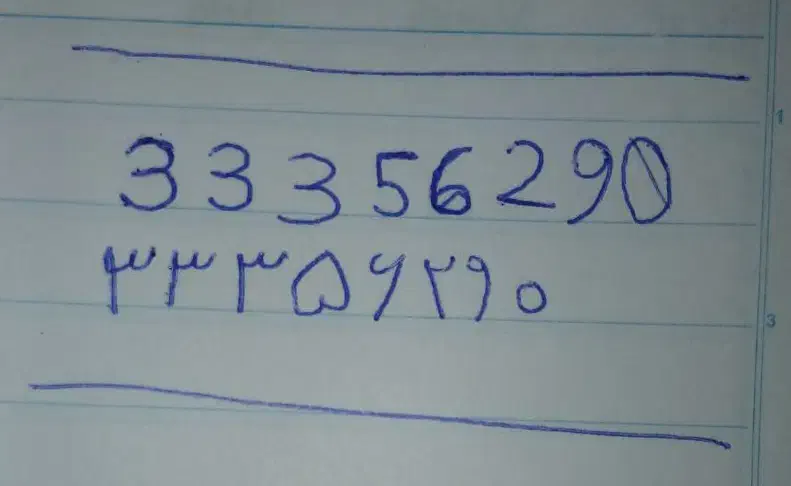 33356290
۳۳۳۵۶۲۹۰
1
3